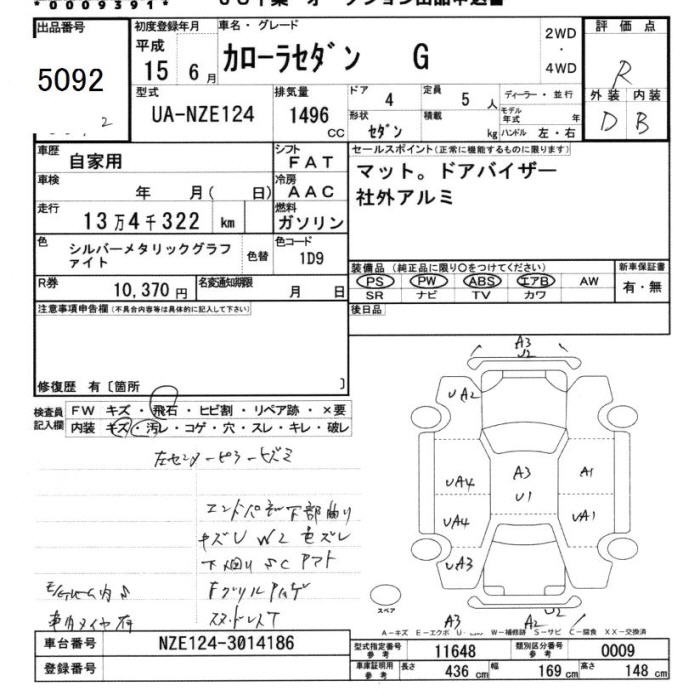 *0009391*
出品番号
5092
初度登録年月
平成
15 6月
車名・グレード
カローラセダン G
2WD
・
4WD
評価点
R
外装 内装
D B
型式
UA-NZE124
排気量
1496
CC
ドア 4
定員 5 人
形状 セダン
積載 kg
ディーラー・並行
モデル年式 年
ハンドル 左・右
車歴 自家用
シフト FAT
車検 年 月( 日)
冷房 AAC
走行 13万4千322 km
燃料 ガソリン
色 シルバーメタリックグラファイト
色替
色コード 1D9
R券 10,370円
名変通知期限 月 日
セールスポイント(正常に機能するものに限ります)
マット。ドアバイザー
社外アルミ
装備品(純正品に限り○をつけてください)
新車保証書
PS PW ABS エアB AW
有・無
SR ナビ TV カワ
後日品
注意事項申告欄(不具合内容等は具体的に記入して下さい)
修復歴 有〔箇所 〕
検査員記入欄
FW キズ・飛石・ヒビ割・リペア跡・×要
内装 キズ・汚レ・コゲ・穴・スレ・キレ・破レ
左センターピラーヒズミ
下部曲り
キズU W2 色ズレ
下廻り
A3
U2
UA2
A3
U1
UA4
UA4
UA3
A1
UA1
U2
A3
A2
スペア
A-キズ E-エクボ W-補修跡 S-サビ C-腐食 XX-交換済
車台番号 NZE124-3014186
登録番号
型式指定番号 参考 11648
類別区分番号 参考 0009
車庫証明用 参考 長さ 436 cm 幅 169 cm 高さ 148 cm